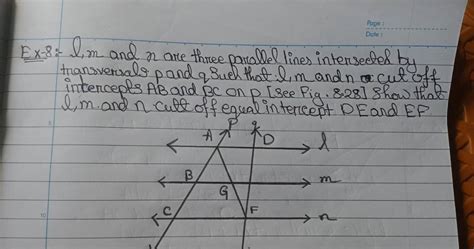 Page :
Date :
Ex-8:- l, m and n are three parallel lines intersected by
transversals p and q Suel that l, m and n cut off
intercepts AB and BC on p [See Fig. 8.28] Show that
l, m and n cutt off equal intercept DE and EF
P
q
A
D
l
B
m
G
C
F
n